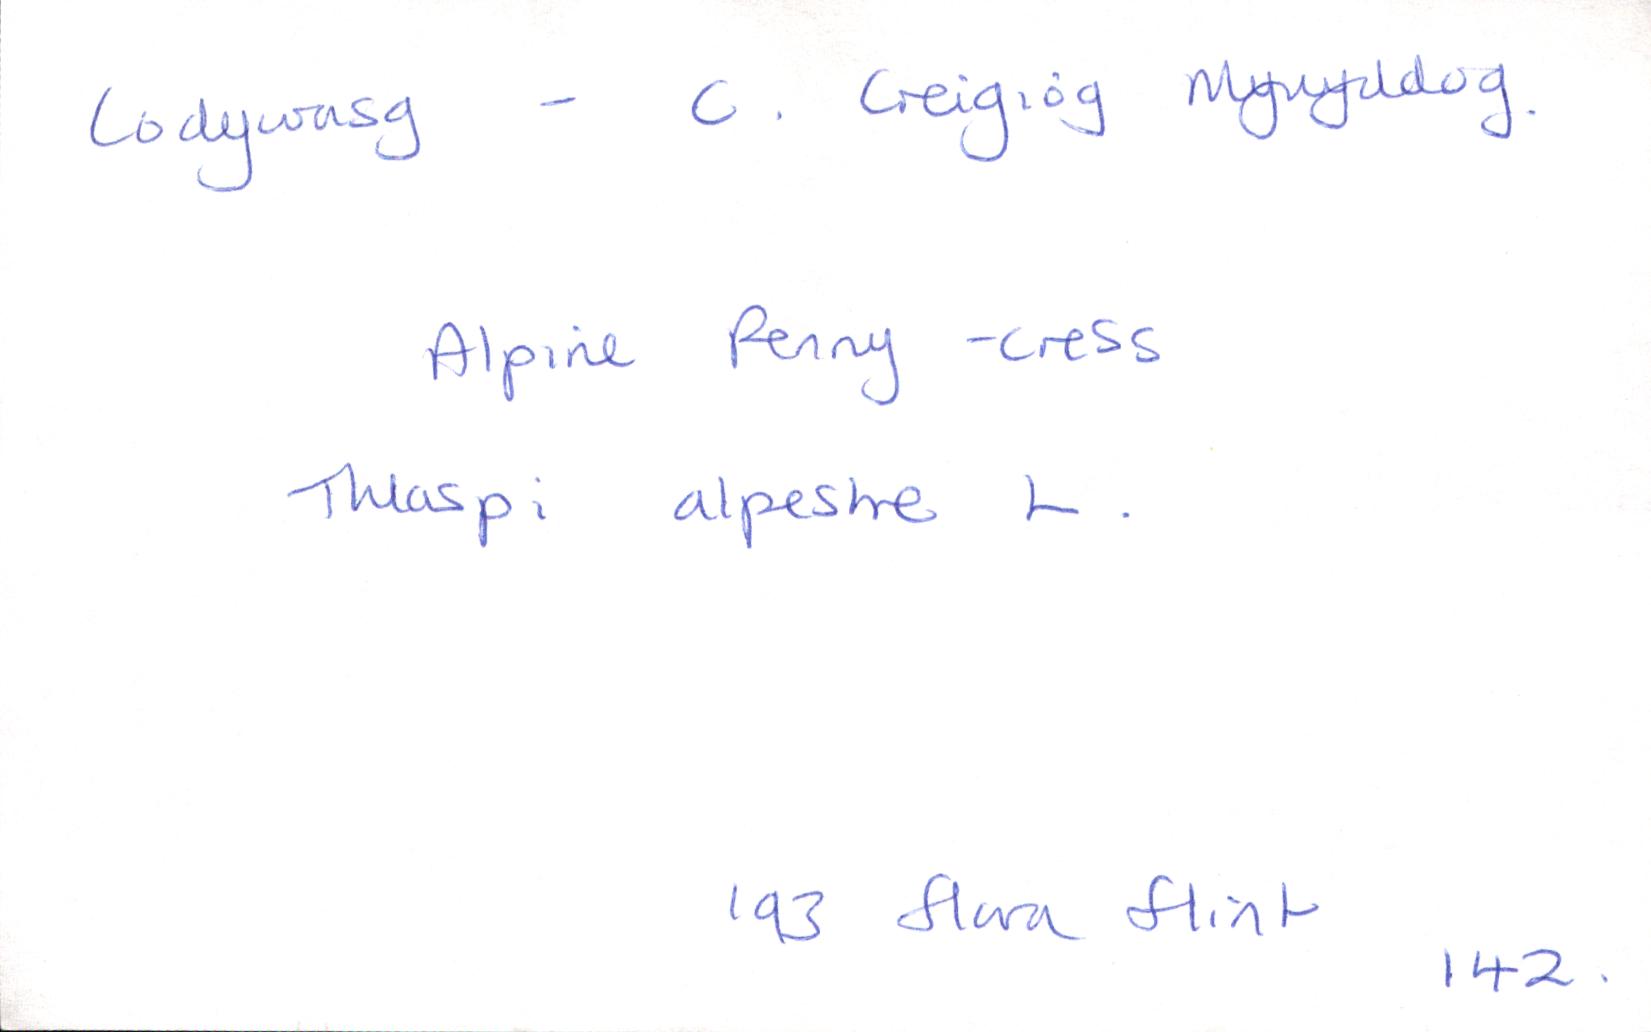 Codywasg - C. Creigiog Mynyddog.
Alpine Penny-cress
Thlaspi alpestre L.
193 Flora Flint
142.